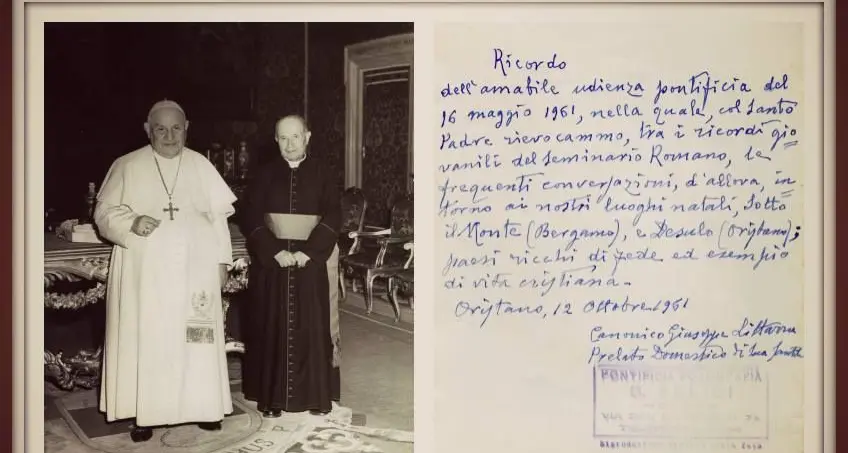 Ricordo
dell'amabile udienza pontificia del
16 maggio 1961, nella quale, col Santo
Padre rievocammo, tra i ricordi gio
vanili del Seminario Romano, le
frequenti conversazioni, d'allora, in
torno ai nostri luoghi natali, Sotto
il Monte (Bergamo), e Desulo (Oristano);
paesi ricchi di fede ed esempio
di vita cristiana.
Oristano, 12 Ottobre 1961
Canonico Giuseppe Littarru
Prelato Domestico di Sua Santità
PONTIFICIA